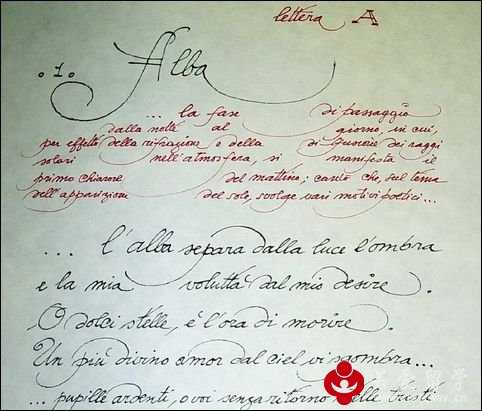 lettera A
.1. Alba
... la fase di passaggio
dalla notte al giorno, in cui,
per effetto della rifrazione e della diffusione dei raggi
solari nell'atmosfera, si manifesta il
primo chiarore del mattino; canto che, sul tema
dell'apparizione del sole, svolge vari motivi poetici...
... l'alba separa dalla luce l'ombra
e la mia voluttà dal mio desire.
O dolci stelle, è l'ora di morire.
Un più divino amor dal ciel vi sgombra...
... pupille ardenti, o voi senza ritorno, stelle tristi